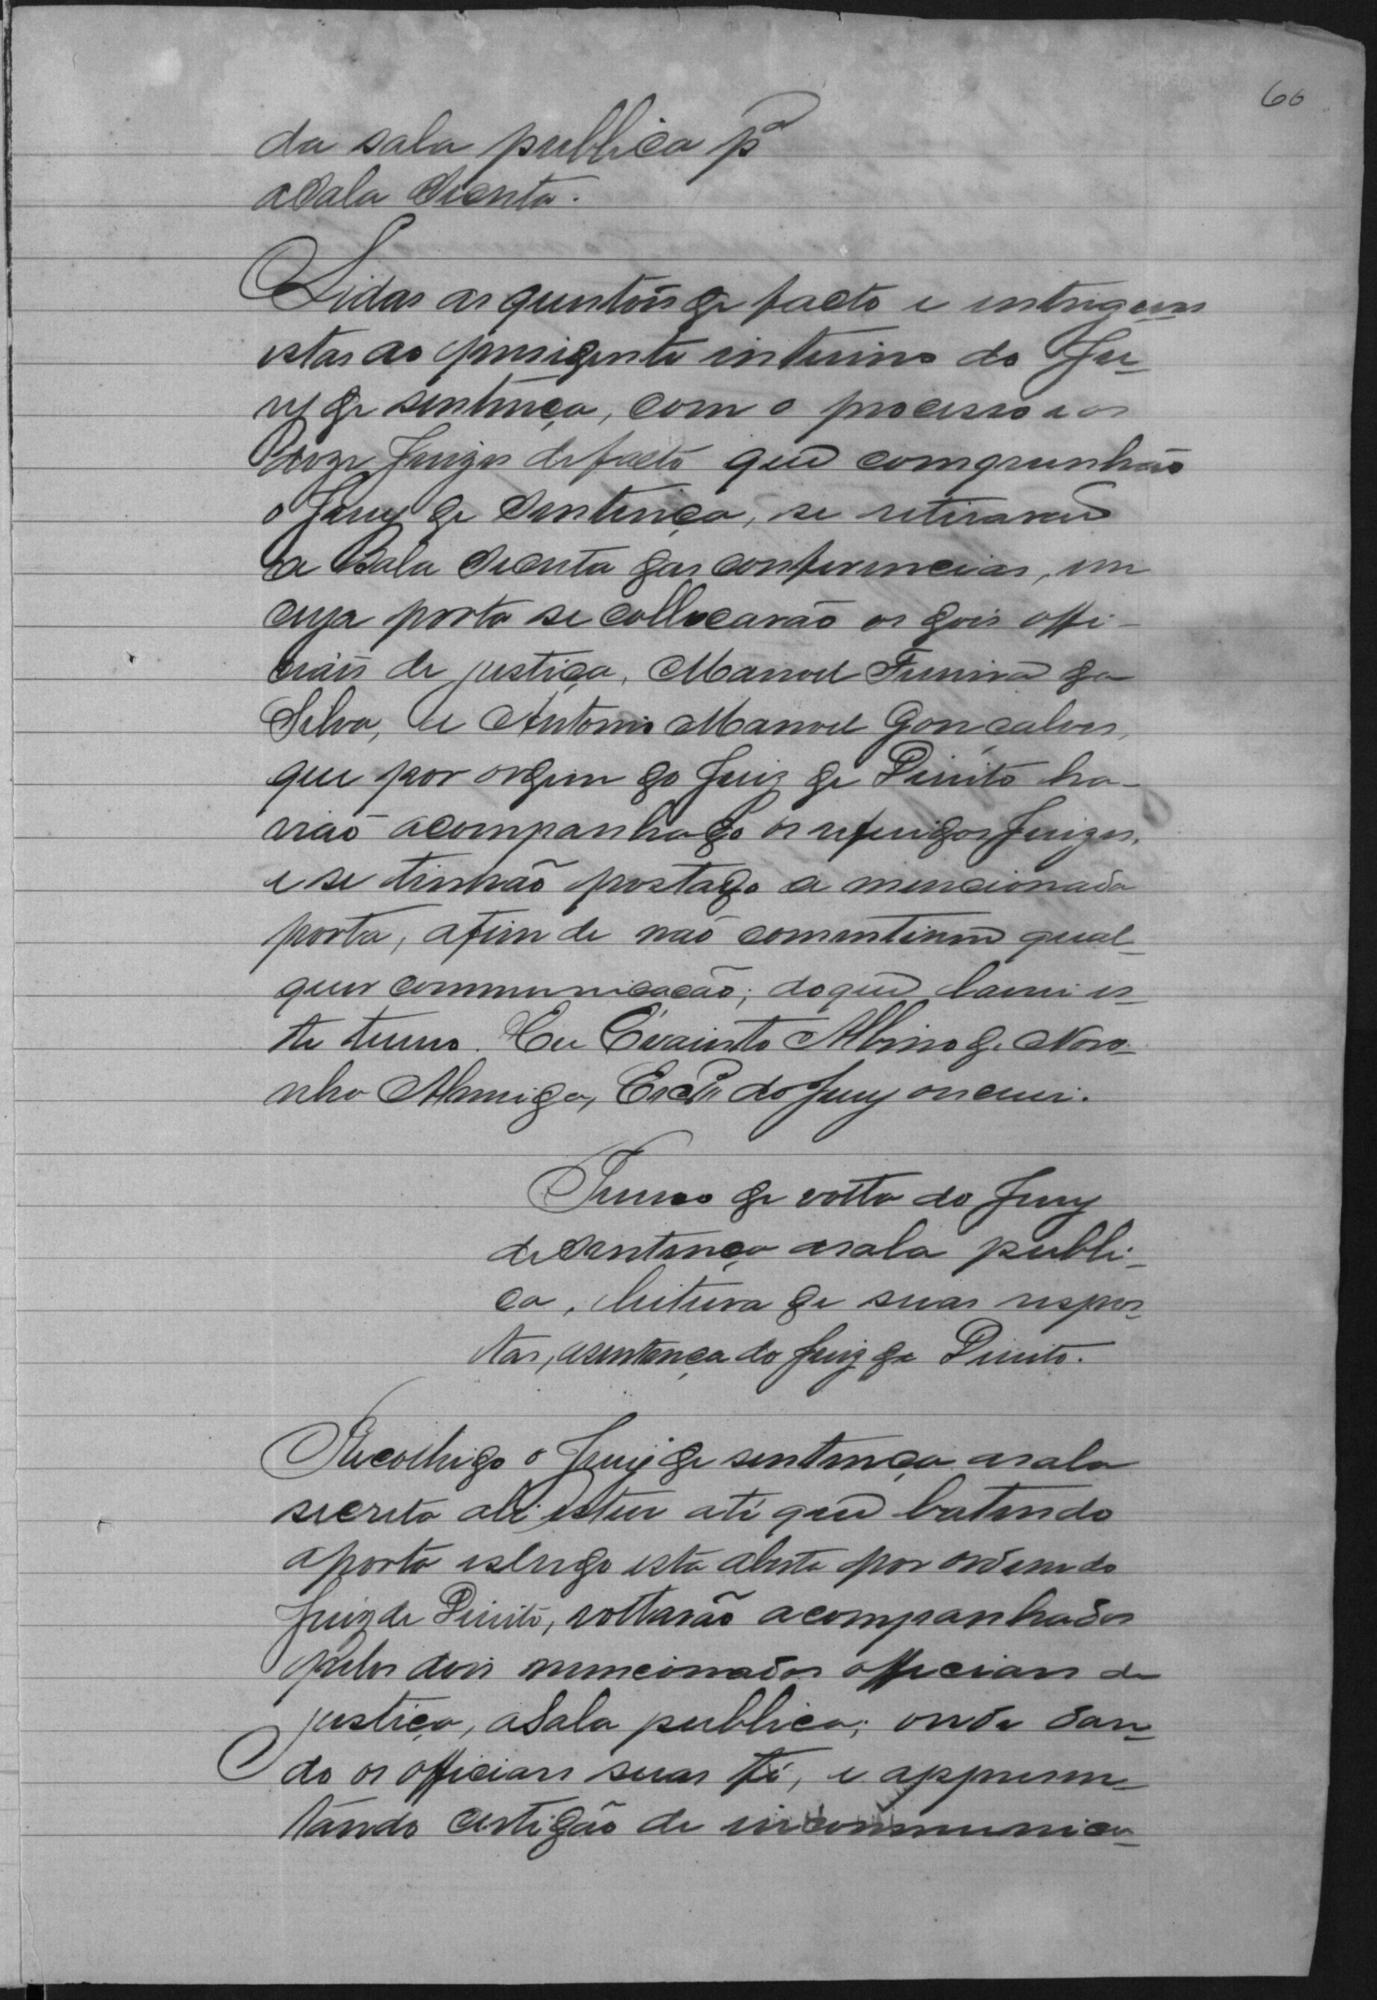 66
da sala publica p.ª
a Sala Secreta.
Lidas as questões de facto e entregues
estas ao presidente interino do Ju-
ry de sentença, com o processo e os
doze Juizes de facto que compunhão
o Jury de Sentença, se retirarão
a Sala Secreta das conferencias, em
cuja porta se collocarão os dois offi-
ciais de justiça, Manoel Ferreira da
Silva, e Antonio Manoel Gonçalves,
que por ordem do Juiz de Direito ha-
vião acompanhado os referidos Juizes,
e se tinhão postado a mencionada
porta, afim de não consentirem qual-
quer communicação; do que lavrei es-
te termo. Eu Evaristo Albino de Noro-
nha Almeida, Escr.m do Jury o escrevi.
Termo de volta do Jury
de Sentença a sala publi-
ca, leitura de suas respos-
tas, a sentença do Juiz de Direito.
Recolhido o Jury de sentença a sala
secreta ali esteve até que batendo
a porta e sendo esta aberta por ordem do
Juiz de Direito, voltarão acompanhados
pelos dois mencionados officiais de
justiça, a Sala publica; onde dan-
do os officiais suas fé, e appresen-
tando certidão de incommunica-